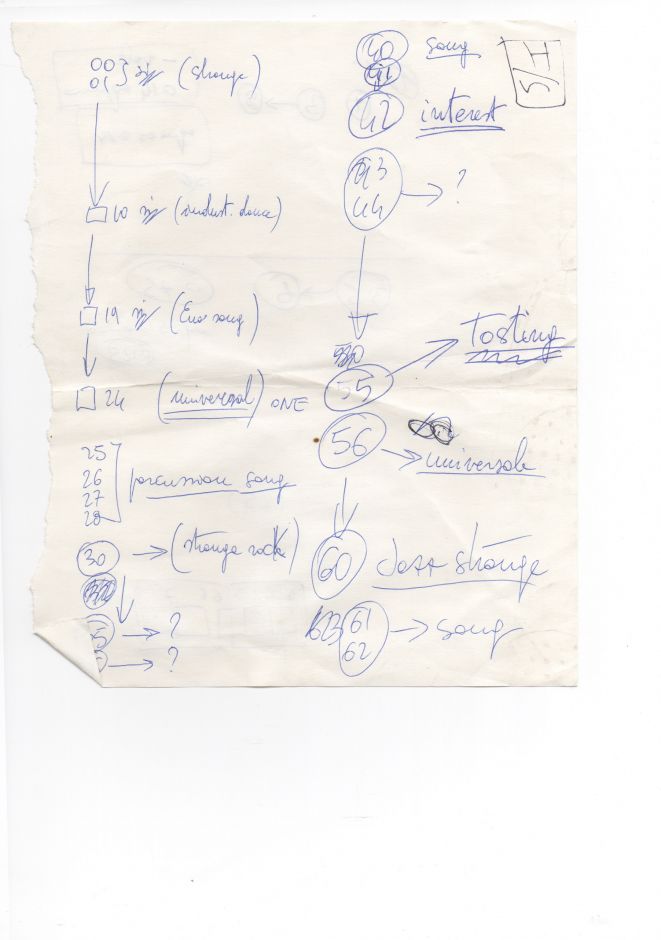 00
01 } (strange)
10 (indust. dance)
19 (Eno song)
24 (universal) ONE
25
26
27
28
percussion song
30 → (strange rock)
→ ?
→ ?
40 song
41
42 interest
43
44 → ?
55 → Tosting
56 → universale
60 Jazz strange
61
62 → song
5/I